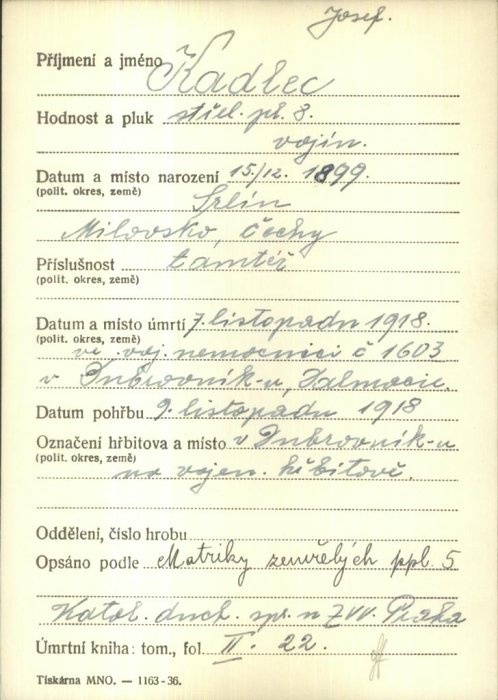 Josef.
Příjmení a jméno Kadlec
Hodnost a pluk střel. pl. 8.
vojín.
Datum a místo narození 15./12. 1899.
(polit. okres, země) Srlín
Milovsko, Čechy
Příslušnost tamtéž
(polit. okres, země)
Datum a místo úmrtí 7. listopadu 1918.
(polit. okres, země) ve voj. nemocnici č 1603
v Dubrovník-u, Dalmacie.
Datum pohřbu 9. listopadu 1918
Označení hřbitova a místo v Dubrovník-u
(polit. okres, země) na vojen. hřbitově.
Oddělení, číslo hrobu
Opsáno podle Matriky zemřelých ppl. 5
Katol. duch. spr. u ZVV. Praha
Úmrtní kniha: tom., fol. II. 22.
Tiskárna MNO. — 1163-36.